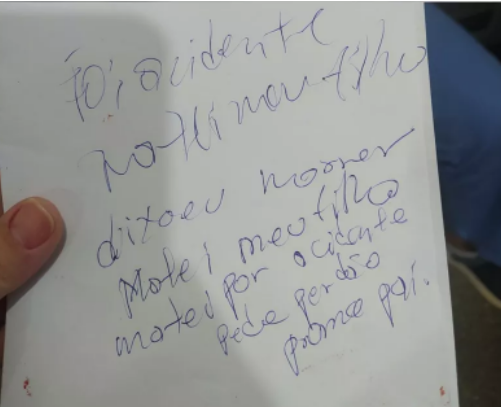 foi acidente
matei meu filho
dixaeu morrer
Matei meu filho
matei por acidente
pede perdão
prometo pai.